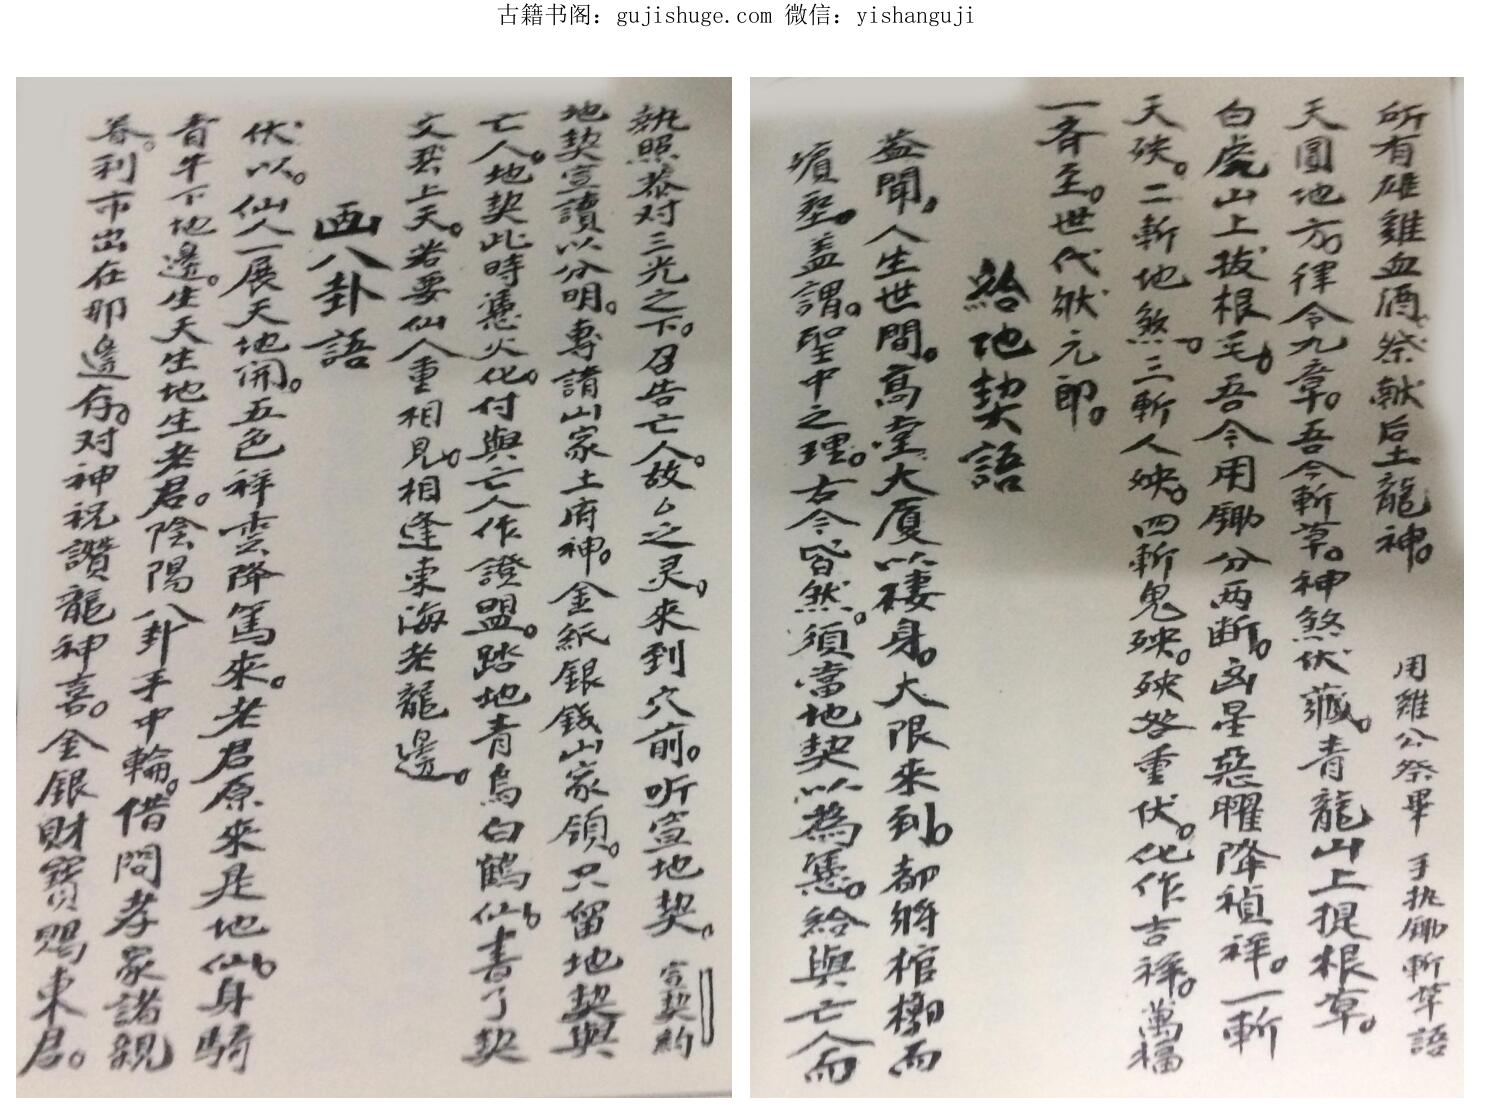 古籍书阁：gujishuge.com 微信：yishanguji
所有雄雞血酒。祭献后土龍神。 用雞公祭畢 手执鋤斬草語
天圓地方。律令九章。吾今斬草。神煞伏藏。青龍山上提根草。
白虎山上拔根毛。吾今用鋤分两断。凶星惡曜降禎祥。一斬
天殃。二斬地煞。三斬人殃。四斬鬼殃。殃咎重伏。化作吉祥。萬福
一斉至。世代狀元郎。
給地契語
盖聞。人生世間。高堂大厦以棲身。大限來到。都將棺槨而
瘞塋。盖謂。聖中之理。古今皆然。須當地契以為憑。給與亡人而
執照。恭对三光之下。召告亡人。故厶之灵。來到穴前。听宣地契。 宣契約
地契宣讀以分明。專請山家土府神。金紙銀錢山家領。只留地契與
亡人。地契此時憑火化。付與亡人作證盟。踏地青烏白鶴仙。書了契
文丟上天。若要仙人重相見。相逢東海老龍邊。
画八卦語
伏以。仙人一展天地開。五色祥雲降篤來。老君原來是地仙。身騎
青牛下地邊。生天生地生老君。陰陽八卦手中輪。借問孝家諸親
眷。利市出在那邊存。对神祝讚龍神喜。金銀財寶賜東君。